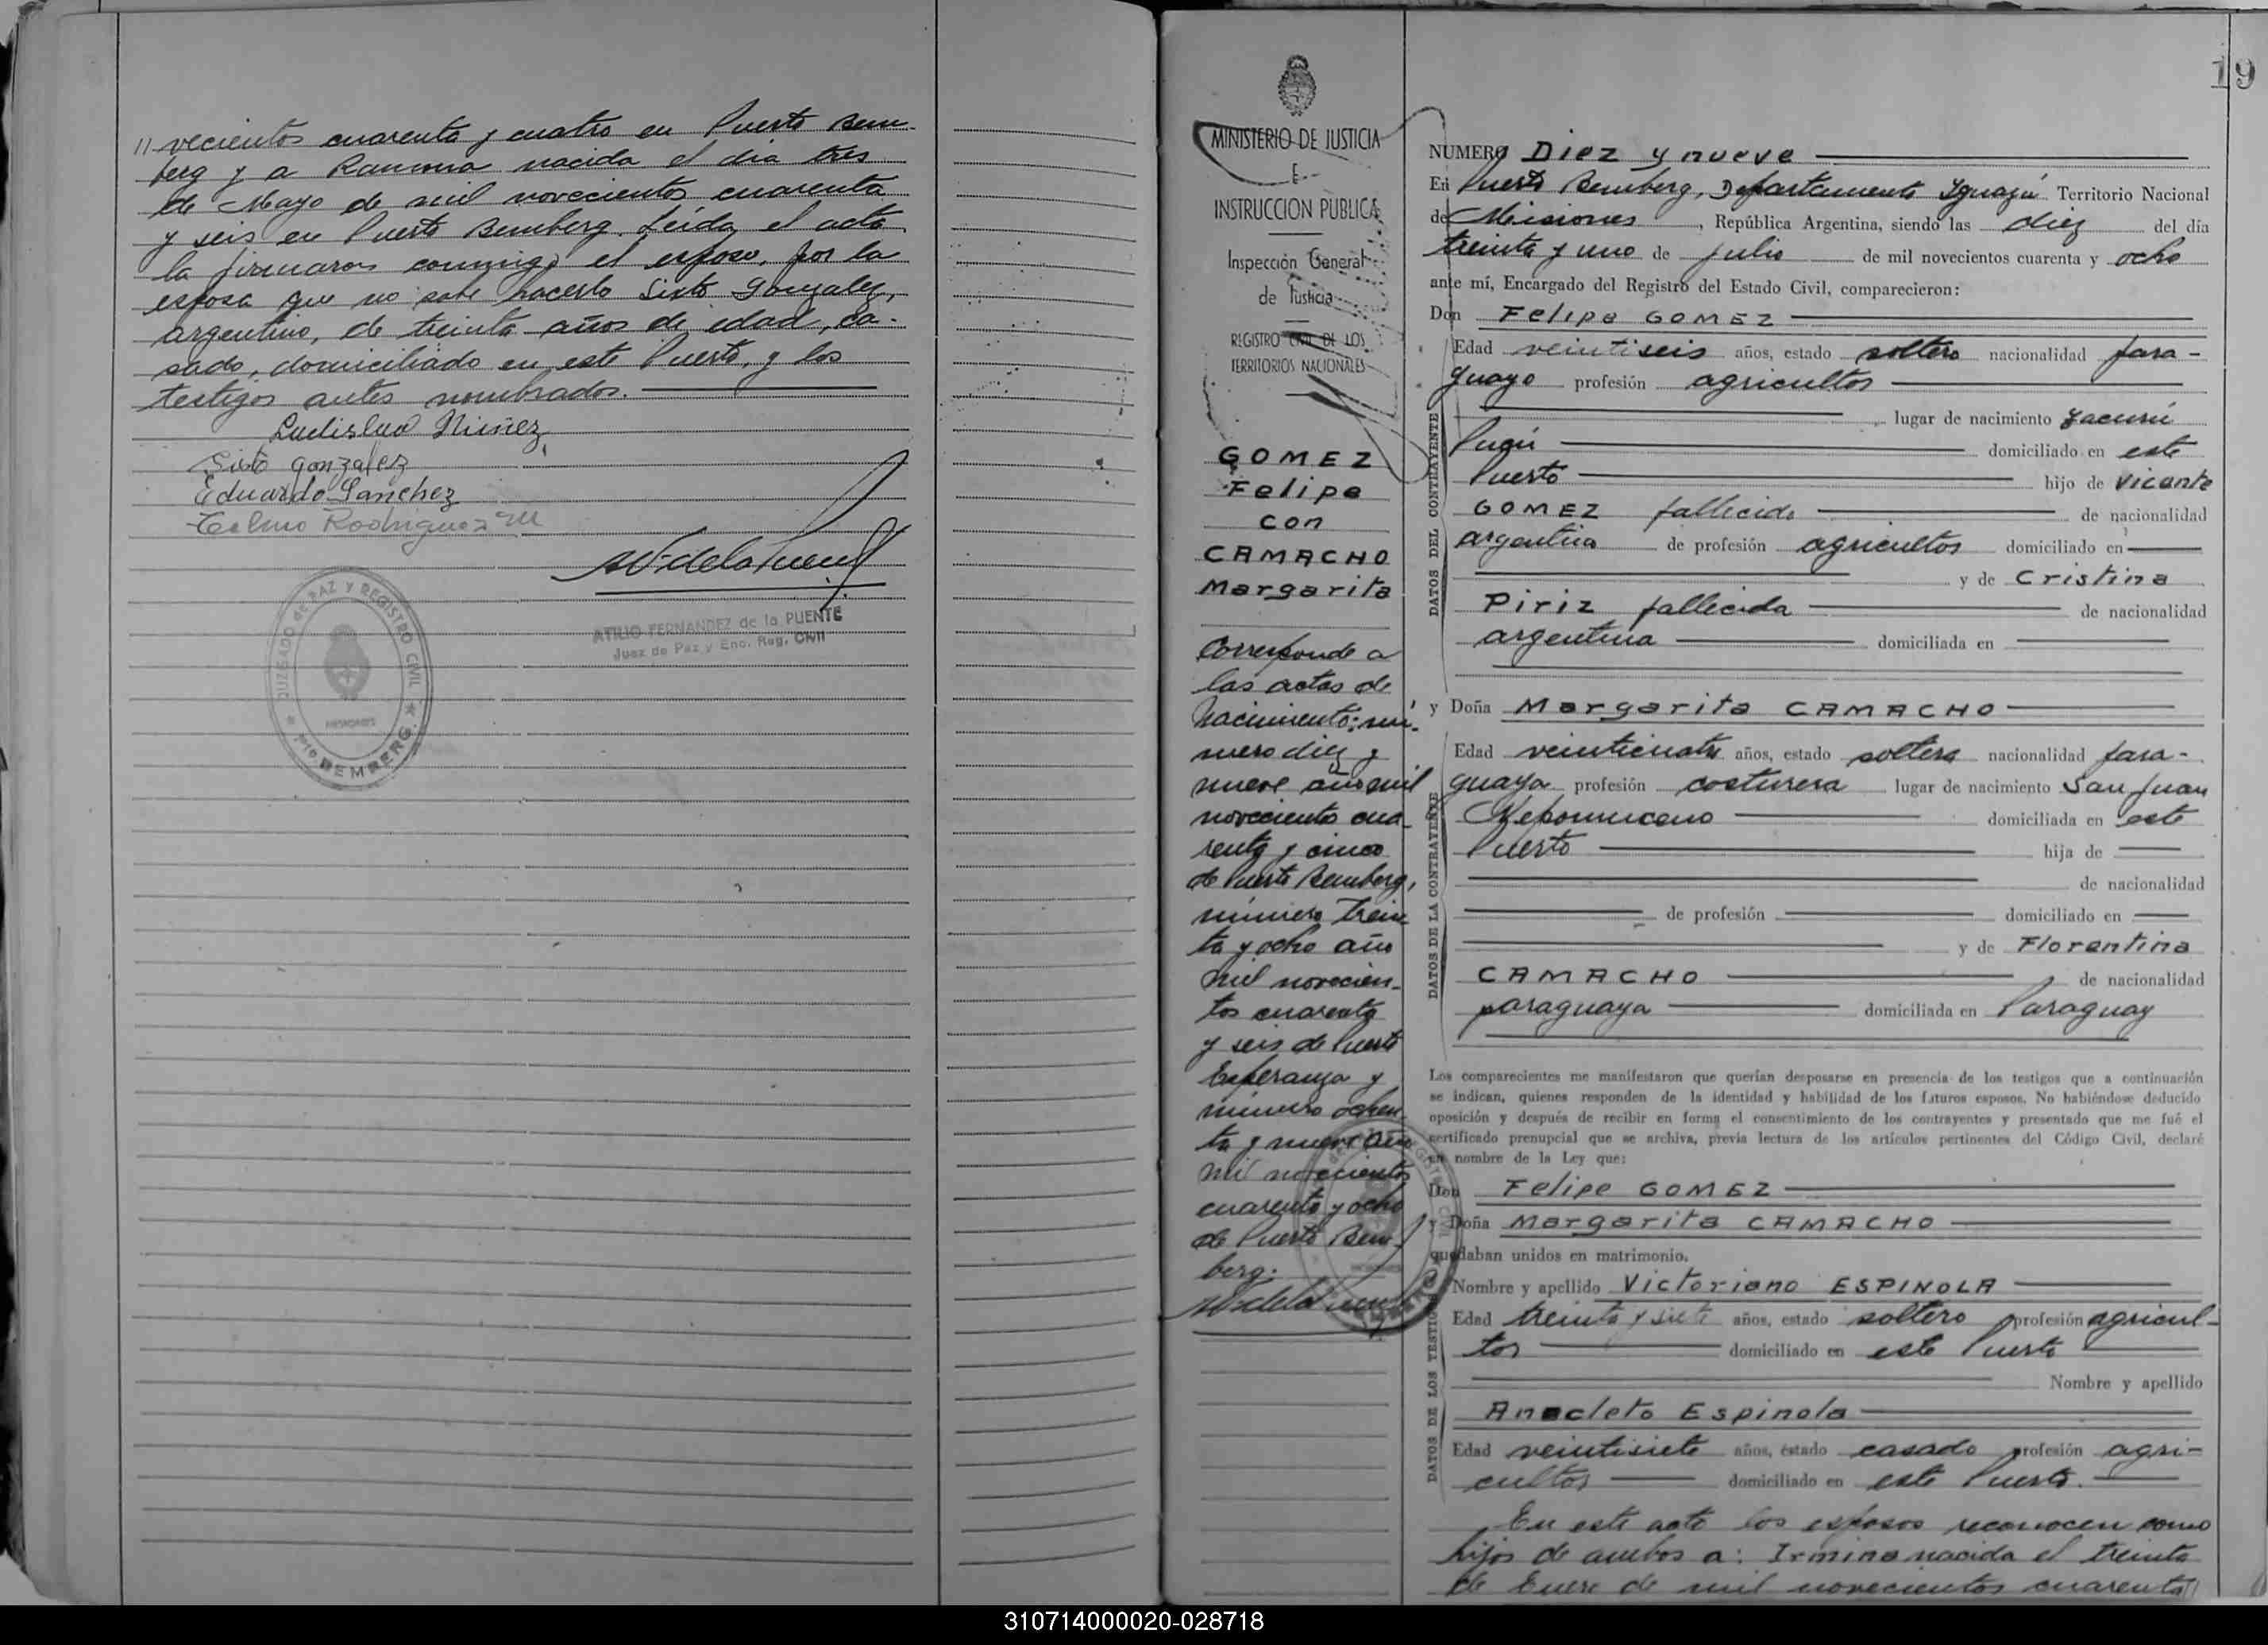 // vecientos cuarenta y cuatro en Puerto Bem-
berg y a Ramona nacida el día tres
de Mayo de mil novecientos cuarenta
y seis en Puerto Bemberg. Leída el acta
la firmaron conmigo el esposo, por la
esposa que no sabe hacerlo Sixto Gonzalez,
argentino, de treinta años de edad, ca-
sado, domiciliado en este Puerto, y los
testigos antes nombrados.
Ladislao Nuñez
Sixto gonzalez
Eduardo Sanchez
Celmo Rodriguez
JUZGADO de PAZ y REGISTRO CIVIL
MISIONES
Pto. BEMBERG
ATILIO FERNANDEZ de la PUENTE
Juez de Paz y Enc. Reg. Civil
19
MINISTERIO DE JUSTICIA
E
INSTRUCCION PUBLICA
Inspección General
de Justicia
REGISTRO CIVIL DE LOS
TERRITORIOS NACIONALES
GOMEZ
Felipe
con
CAMACHO
Margarita
Corresponde a
las actas de
Nacimiento: nú-
mero diez y
nueve año mil
novecientos cua-
renta y cinco
de Puerto Bemberg,
número Trein
ta y ocho año
mil novecien-
tos cuarenta
y seis de Puerto
Esperanza y
número ochen
ta y nueve año
mil novecientos
cuarenta y ocho
de Puerto Bem-
berg.
NUMERO Diez y nueve
En Puerto Bemberg, Departamento Iguazú Territorio Nacional
de Misiones, República Argentina, siendo las diez del día
treinta y uno de julio de mil novecientos cuarenta y ocho
ante mí, Encargado del Registro del Estado Civil, comparecieron:
Don Felipe GOMEZ
DATOS DEL CONTRAYENTE
Edad veintiseis años, estado soltero nacionalidad para-
guayo profesión agricultor
lugar de nacimiento Yacuní
Pucú domiciliado en este
Puerto hijo de Vicente
GOMEZ fallecido de nacionalidad
argentina de profesión agricultor domiciliado en
y de Cristina
Piriz fallecida de nacionalidad
argentina domiciliada en
y Doña Margarita CAMACHO
DATOS DE LA CONTRAYENTE
Edad veinticuatro años, estado soltera nacionalidad para-
guaya profesión costurera lugar de nacimiento San Juan
Nepomuceno domiciliada en este
Puerto hija de
de nacionalidad
de profesión domiciliado en
y de Florentina
CAMACHO de nacionalidad
paraguaya domiciliada en Paraguay
Los comparecientes me manifestaron que querían desposarse en presencia de los testigos que a continuación
se indican, quienes responden de la identidad y habilidad de los futuros esposos. No habiéndose deducido
oposición y después de recibir en forma el consentimiento de los contrayentes y presentado que me fué el
certificado prenupcial que se archiva, previa lectura de los artículos pertinentes del Código Civil, declaré
en nombre de la Ley que:
Don Felipe GOMEZ
y Doña Margarita CAMACHO
quedaban unidos en matrimonio.
DATOS DE LOS TESTIGOS
Nombre y apellido Victoriano ESPINOLA
Edad treinta y siete años, estado soltero profesión agricul-
tor domiciliado en este Puerto
Nombre y apellido
Anacleto Espinola
Edad veintisiete años, estado casado profesión agri-
cultor domiciliado en este Puerto.
En este acto los esposos reconocen como
hijos de ambos a: Irmina nacida el treinta
de Enero de mil novecientos cuarenta //
310714000020-028718